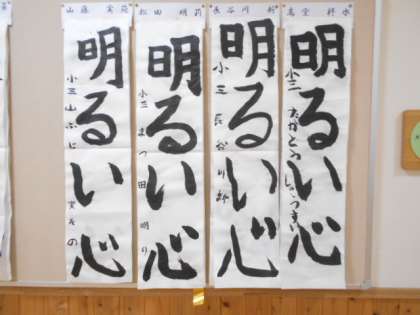 高堂 梓水
明るい心
小三 たかどう しょうすい
長谷川 新
明るい心
小三 長谷川 新
松田 明莉
明るい心
小三 まつ田 明り
山藤 実苑
明るい心
小三 山ふじ 実その